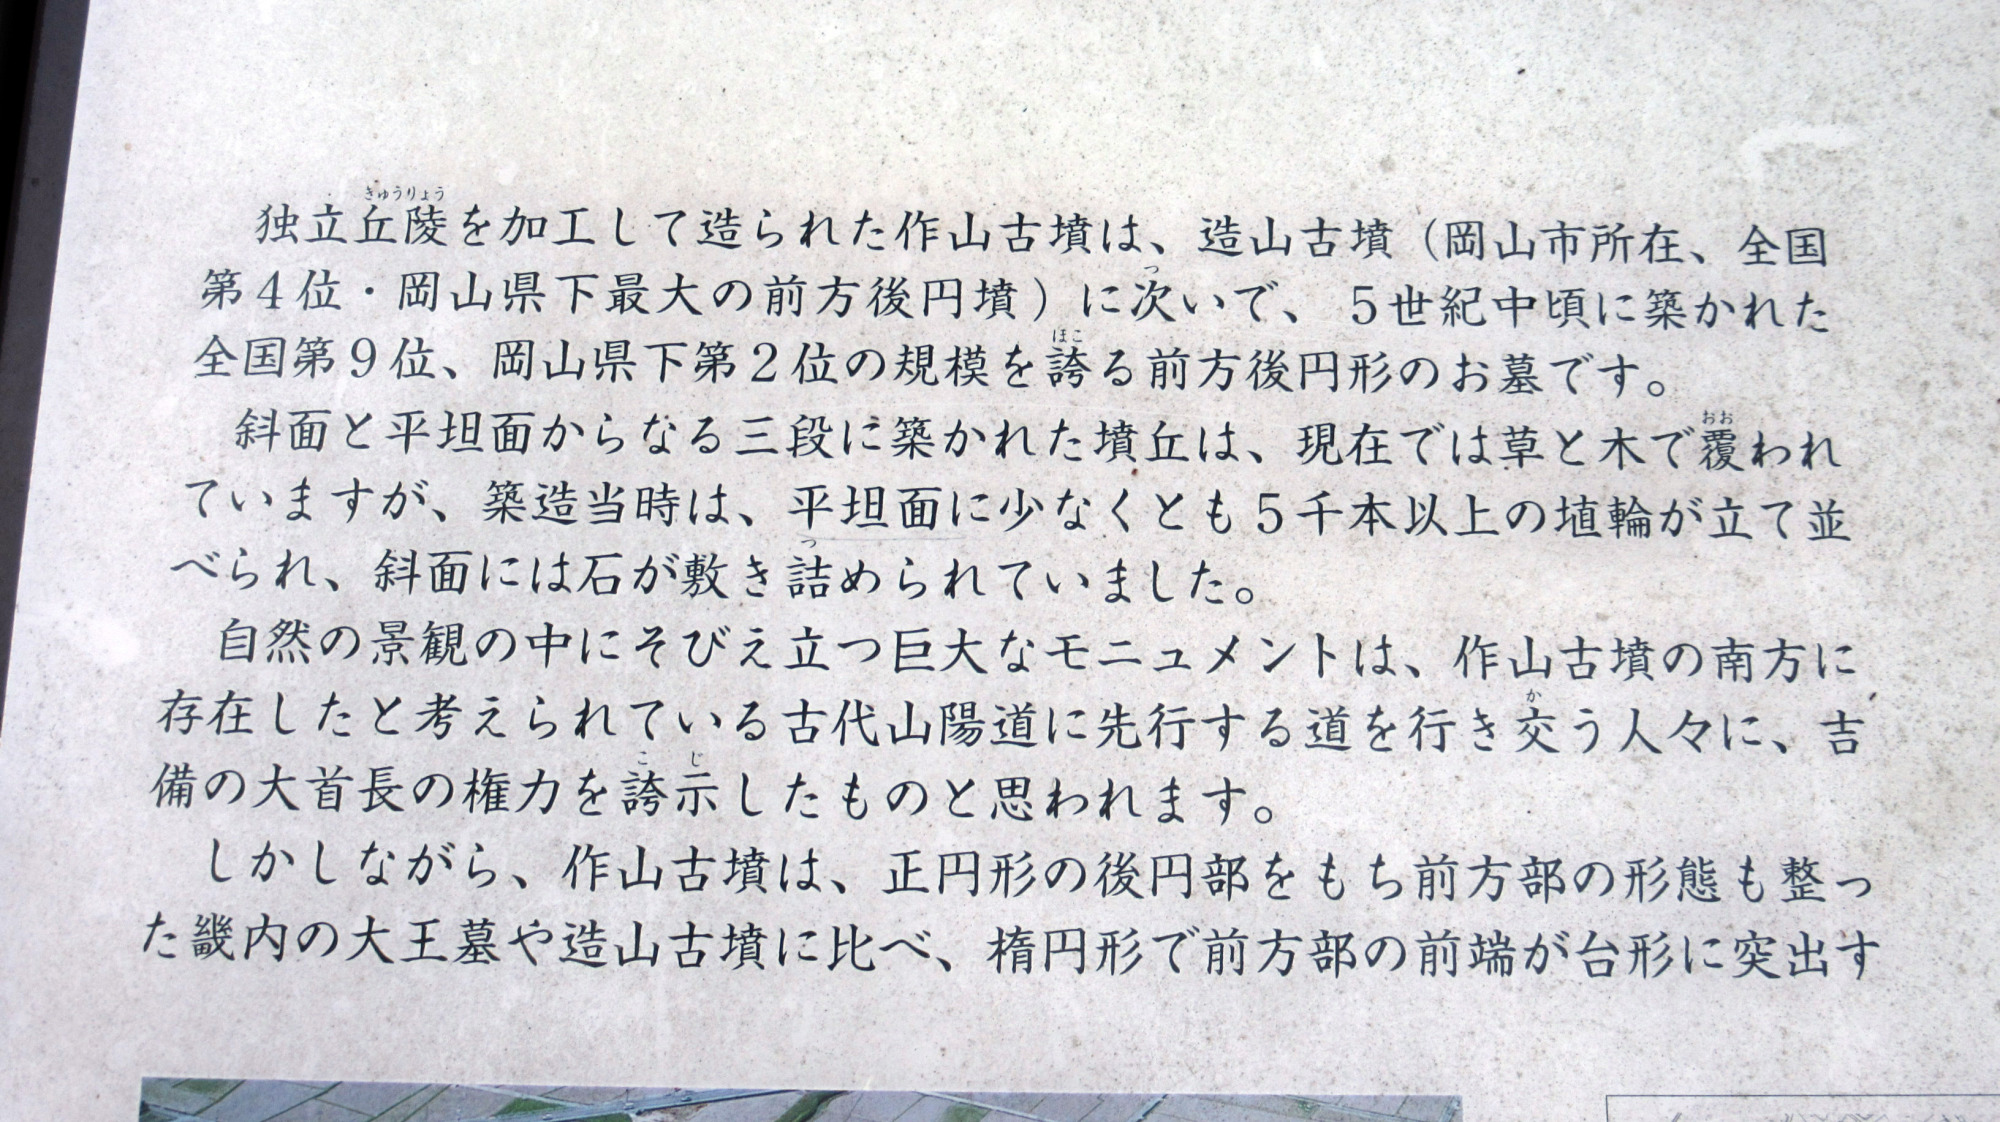 独立丘陵を加工して造られた作山古墳は、造山古墳（岡山市所在、全国
第４位・岡山県下最大の前方後円墳）に次いで、５世紀中頃に築かれた
全国第９位、岡山県下第２位の規模を誇る前方後円形のお墓です。
斜面と平坦面からなる三段に築かれた墳丘は、現在では草と木で覆われ
ていますが、築造当時は、平坦面に少なくとも５千本以上の埴輪が立て並
べられ、斜面には石が敷き詰められていました。
自然の景観の中にそびえ立つ巨大なモニュメントは、作山古墳の南方に
存在したと考えられている古代山陽道に先行する道を行き交う人々に、吉
備の大首長の権力を誇示したものと思われます。
しかしながら、作山古墳は、正円形の後円部をもち前方部の形態も整っ
た畿内の大王墓や造山古墳に比べ、楕円形で前方部の前端が台形に突出す